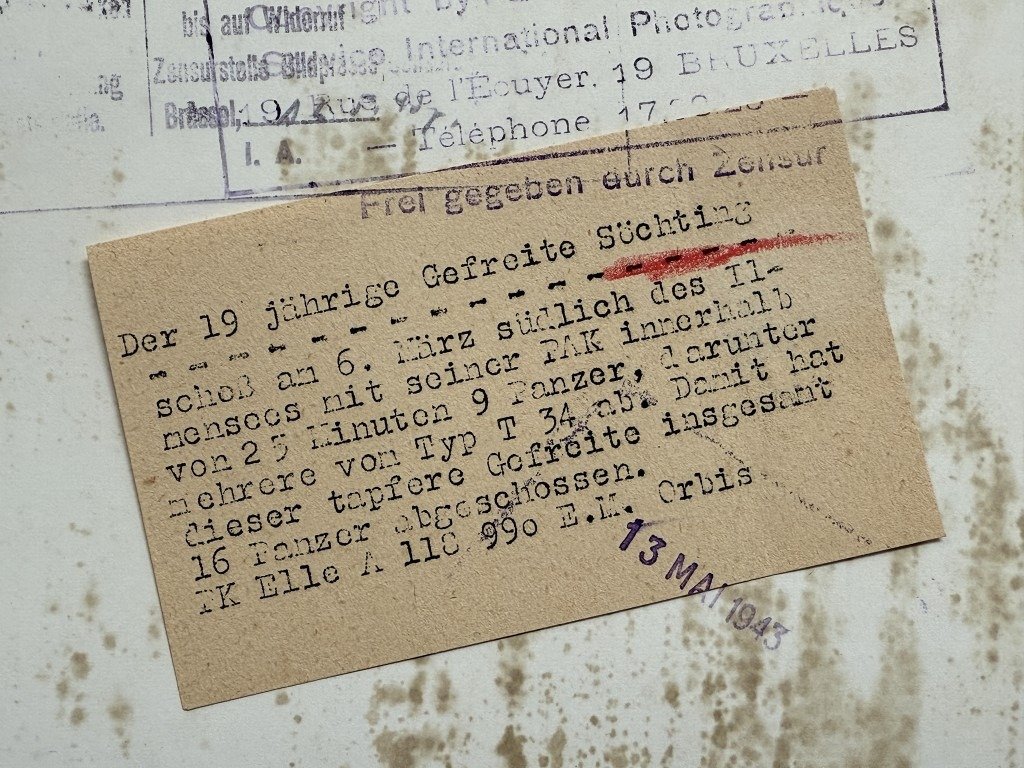 bis auf Widerruf
Zensurstelle Bildpresse
Brüssel,
I. A.
International Photogra
19, Rue de l'Écuyer, 19 BRUXELLES
— Téléphone 17.
Frei gegeben durch Zensur
Der 19 jährige Gefreite Söchting
schoß am 6. März südlich des Il-
mensees mit seiner PAK innerhalb
von 25 Minuten 9 Panzer, darunter
mehrere vom Typ T 34 ab. Damit hat
dieser tapfere Gefreite insgesamt
16 Panzer abgeschossen.
PK Elle A 118 990 E.M. Orbis
13 MAI 1943